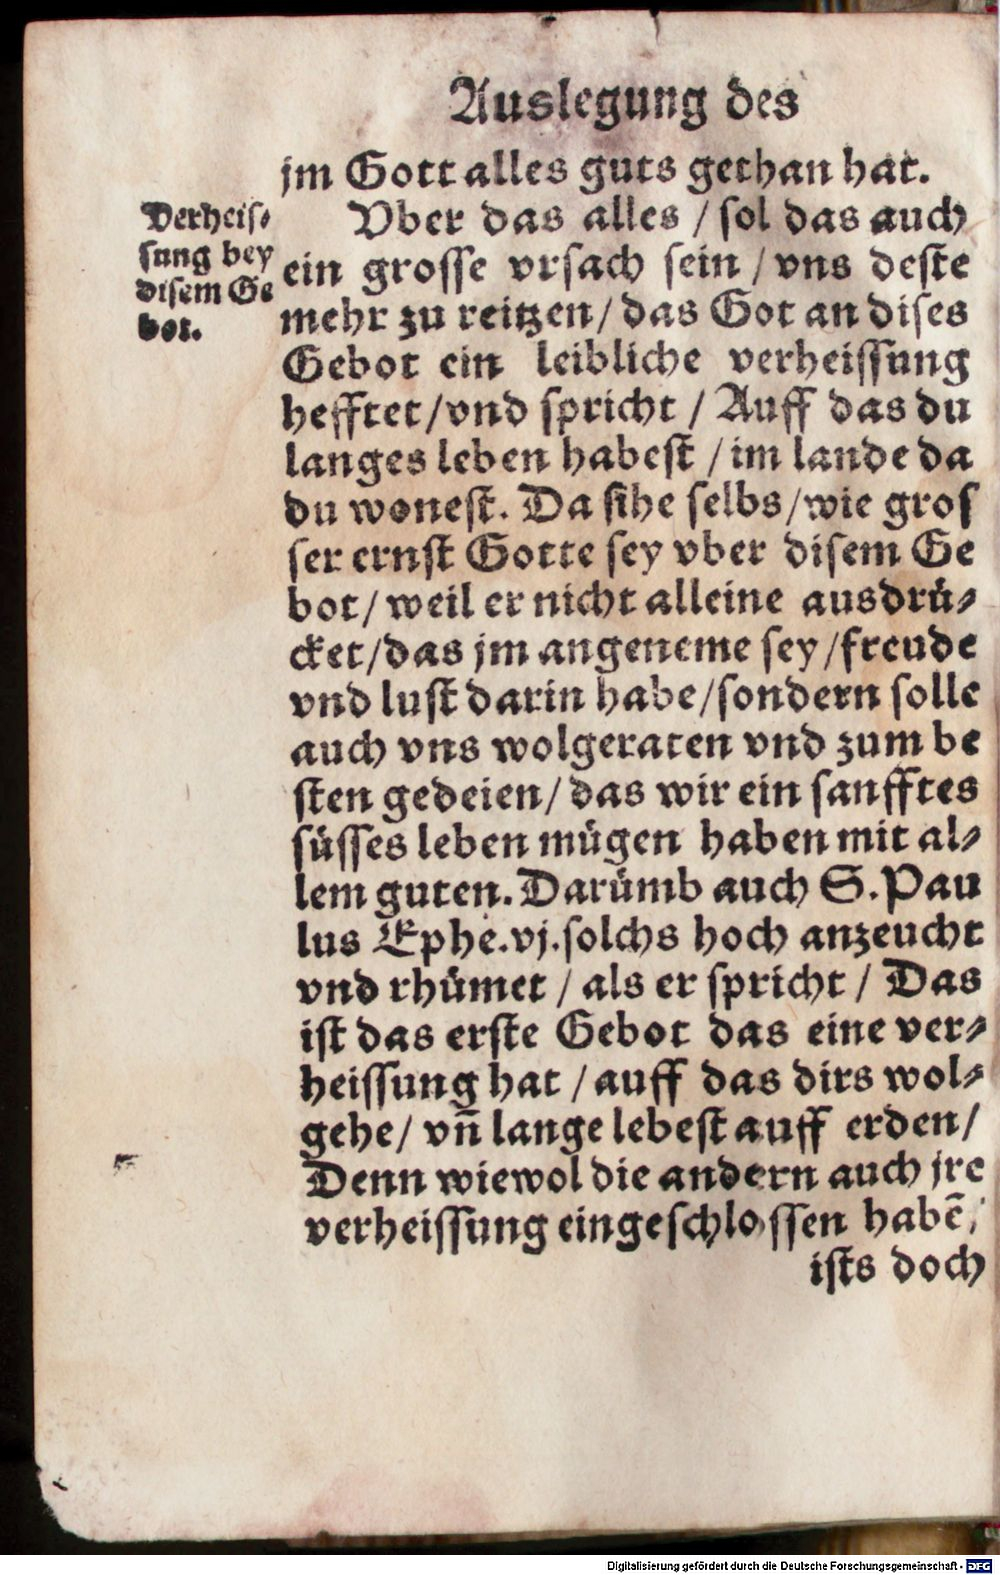 Auslegung des
jm Gott alles guts gethan hat.
Verheis-
sung bey
disem Ge
bot.
Vber das alles / sol das auch
ein grosse vrsach sein / vns deste
mehr zu reitzen / das Got an dises
Gebot ein leibliche verheissung
hefftet / vnd spricht / Auff das du
langes leben habest / im lande da
du wonest. Da sihe selbs / wie gros
ser ernst Gotte sey vber disem Ge
bot / weil er nicht alleine ausdrü-
cket / das jm angeneme sey / freude
vnd lust darin habe / sondern solle
auch vns wolgeraten vnd zum be
sten gedeien / das wir ein sanfftes
süsses leben mügen haben mit al-
lem guten. Darümb auch S. Pau
lus Ephe. vj. solchs hoch anzeucht
vnd rhümet / als er spricht / Das
ist das erste Gebot das eine ver-
heissung hat / auff das dirs wol-
gehe / vñ lange lebest auff erden /
Denn wiewol die andern auch jre
verheissung eingeschlossen habẽ,
ists doch
Digitalisierung gefördert durch die Deutsche Forschungsgemeinschaft - DFG